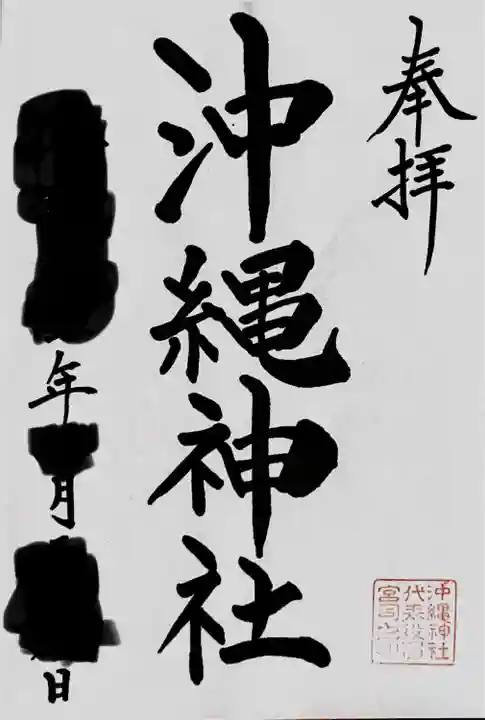 奉拝
沖縄神社
年 月 日
沖縄神社
代表役員
宮司之印